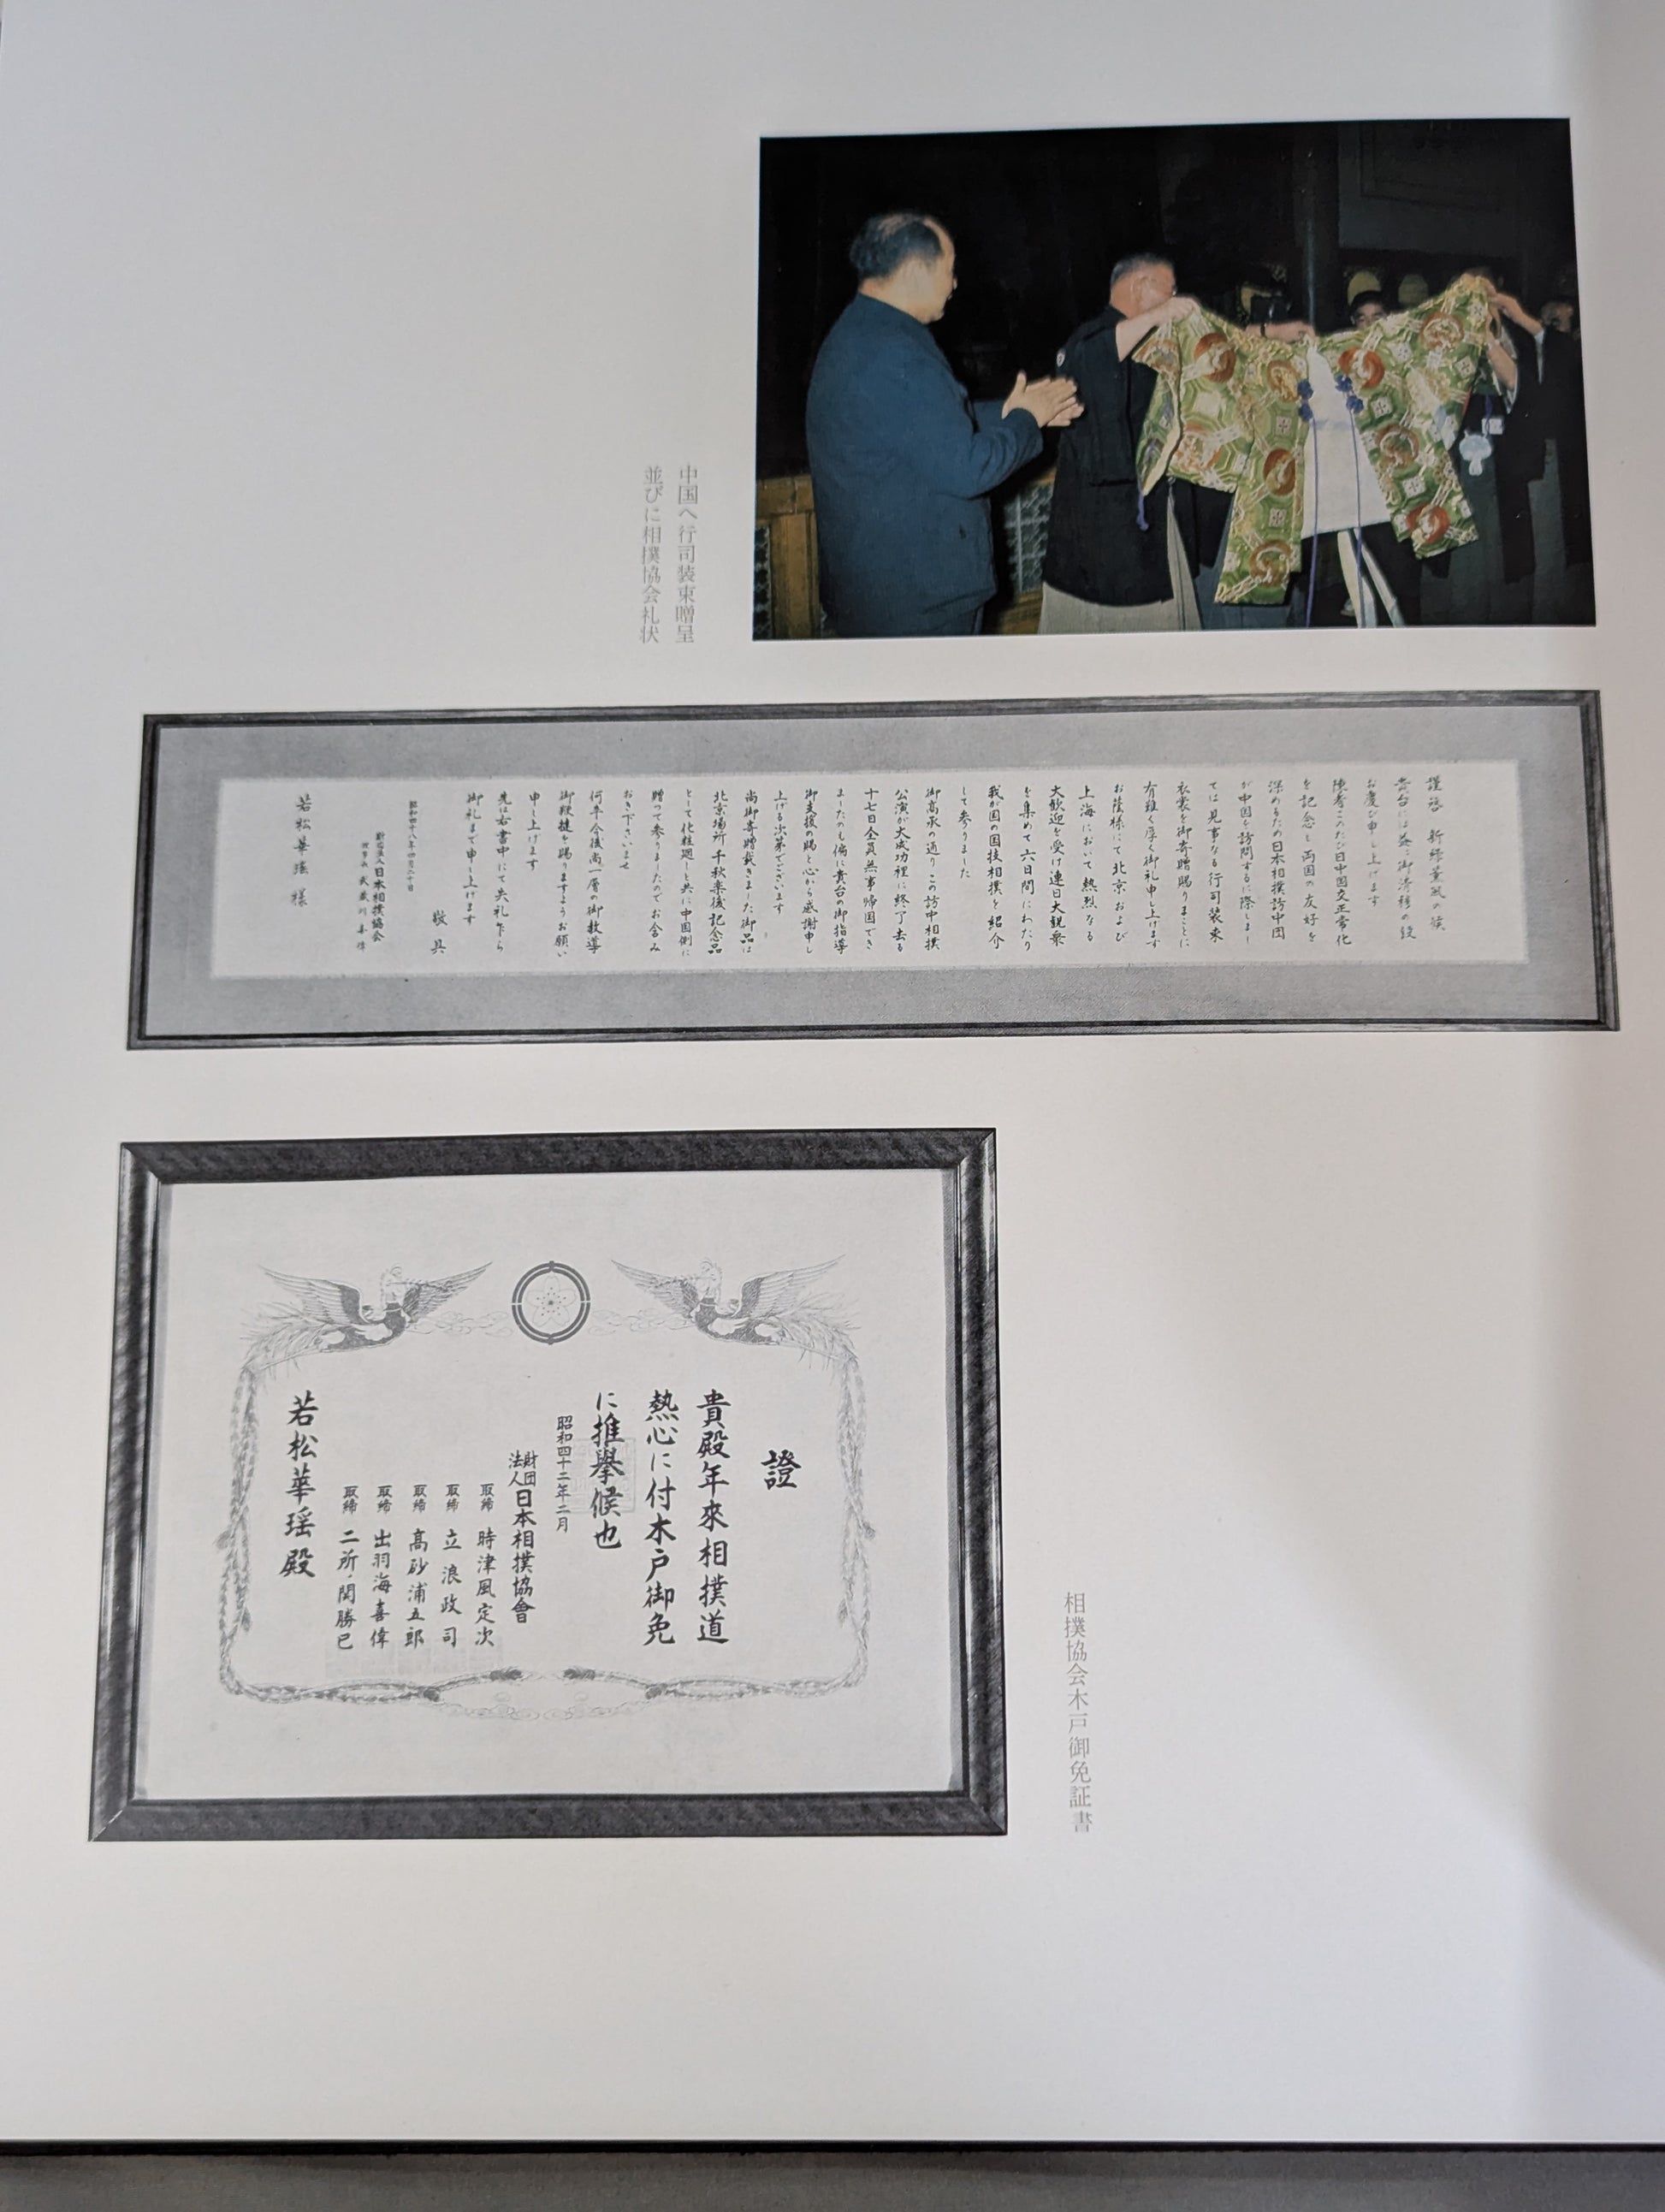 中国へ行司装束贈呈
並びに相撲協会礼状
謹啓 新緑薫風の候
貴台には益々御清穆の段
お慶び申し上げます
陳者このたび日中国交正常化
を記念し両国の友好を
深めるため日本相撲訪中団
が中国を訪問するに際しまし
ては見事なる行司装束
衣裳を御寄贈賜りまことに
有難く厚く御礼申し上げます
お蔭様にて北京および
上海において熱烈なる
大歓迎を受け連日大観衆
を集めて六日間にわたり
我が国の国技相撲を紹介
して参りました
御高承の通りこの訪中相撲
公演が大成功裡に終了去る
十七日全員無事帰国でき
ましたのも偏に貴台の御指導
御支援の賜と心から感謝申し
上げる次第でございます
尚御寄贈戴きました御品は
北京場所千秋楽後記念品
として化粧廻しと共に中国側に
贈って参りましたのでお含み
おき下さいませ
何卒今後尚一層の御教導
御鞭撻を賜りますようお願い
申し上げます
先は右書中にて失礼乍ら
御礼まで申し上げます
敬具
昭和四十八年四月二十日
財団法人日本相撲協会
理事長 武蔵川喜偉
若松華瑶様
證
貴殿年來相撲道
熱心に付木戸御免
に推擧候也
昭和四十二年二月
財団法人日本相撲協會
取締 時津風定次
取締 立浪政司
取締 高砂浦五郎
取締 出羽海喜偉
取締 二所ノ関勝巳
若松華瑶殿
相撲協会木戸御免証書